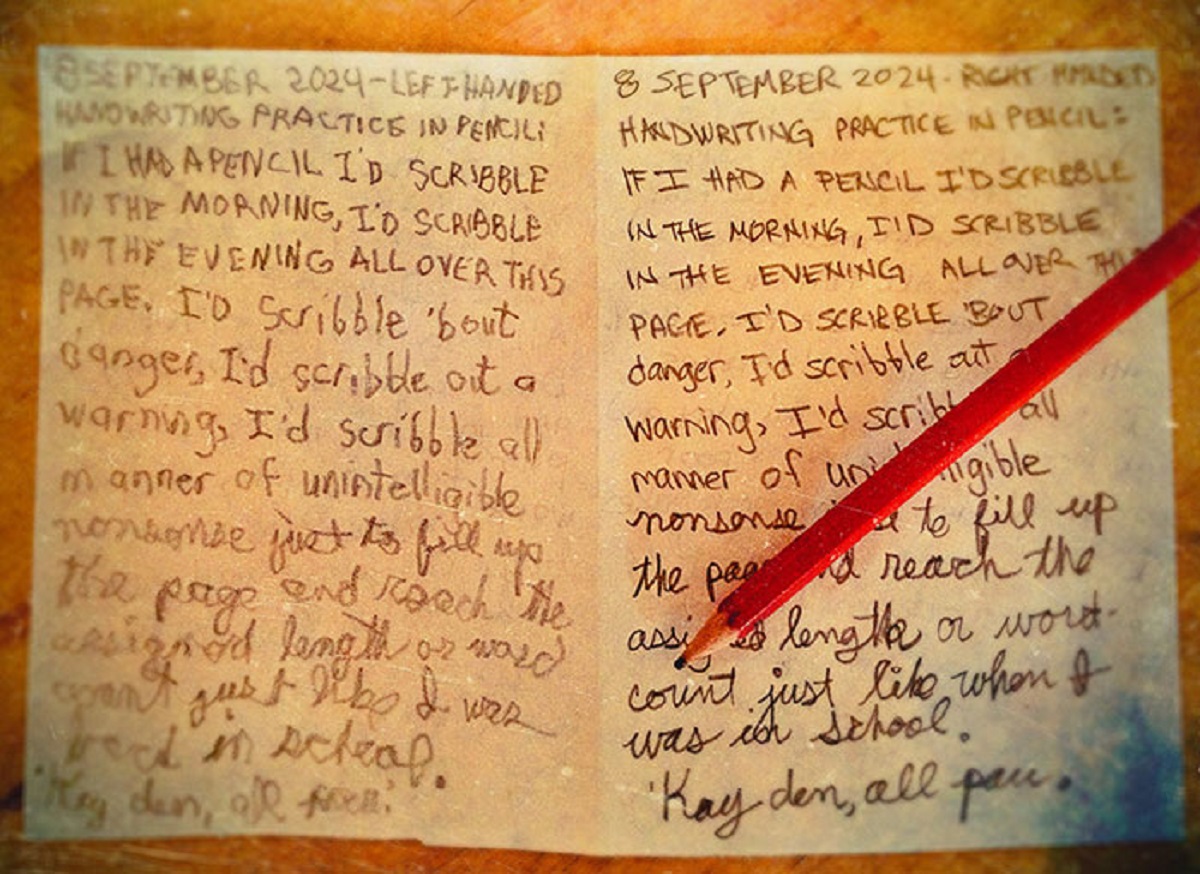 8 SEPTEMBER 2024-LEFT-HANDED
HANDWRITING PRACTICE IN PENCIL:
IF I HAD A PENCIL I'D SCRIBBLE
IN THE MORNING, I'D SCRIBBLE
IN THE EVENING ALL OVER THIS
PAGE. I'D Scribble 'bout
danger, I'd scribble out a
warning, I'd scribble all
manner of unintelligible
nonsense just to fill up
the page and reach the
assigned length or word
count just like I was
back in school.
'Kay den, all pau.
8 SEPTEMBER 2024-RIGHT HANDED
HANDWRITING PRACTICE IN PENCIL:
IF I HAD A PENCIL I'D SCRIBBLE
IN THE MORNING, I'D SCRIBBLE
IN THE EVENING ALL OVER THIS
PAGE. I'D SCRIBBLE 'BOUT
danger, I'd scribble out
warning, I'd all
manner of
nonsense to fill up
the reach the
length or word-
count just like when I
was in school.
'Kay den, all pau.